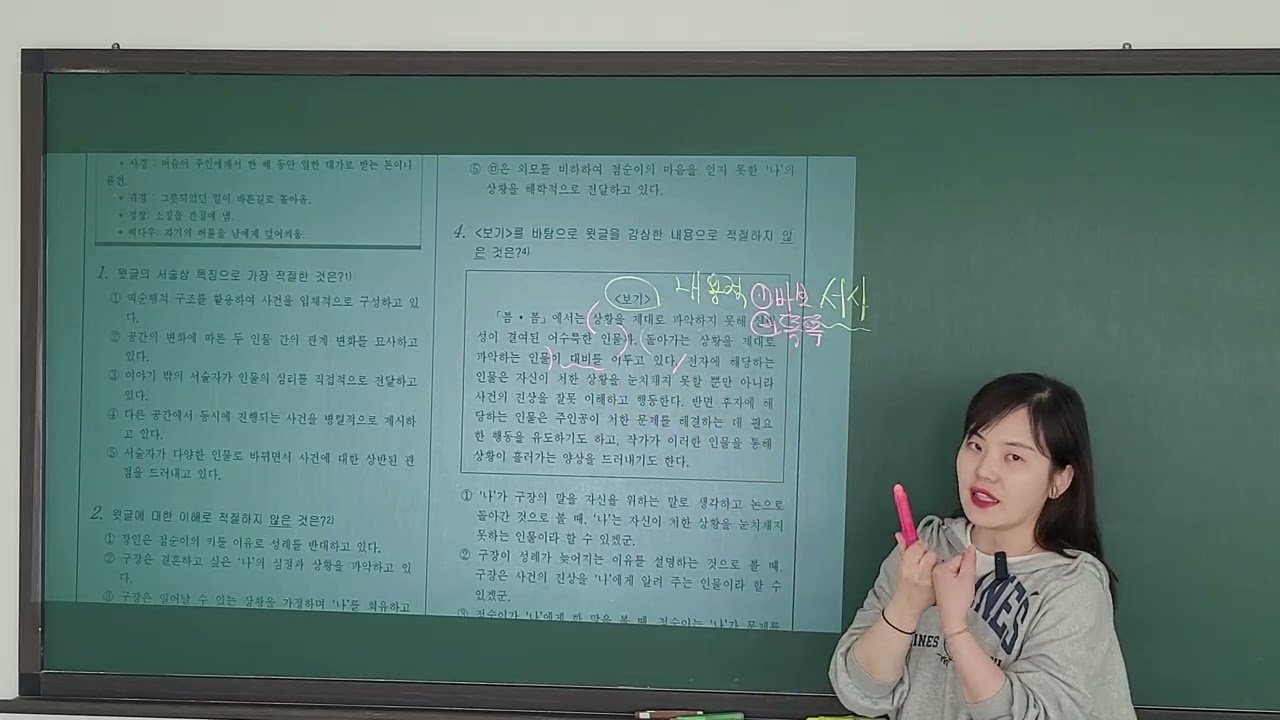 • 사경 : 머슴이 주인에게서 한 해 동안 일한 대가로 받는 돈이나
물건.
• 귀정 : 그릇되었던 일이 바른길로 돌아옴.
• 정장: 소장을 관청에 냄.
• 떡다우: 자기의 허물을 남에게 덮어씌움.
1. 윗글의 서술상 특징으로 가장 적절한 것은?1)
① 역순행적 구조를 활용하여 사건을 입체적으로 구성하고 있
다.
② 공간의 변화에 따른 두 인물 간의 관계 변화를 묘사하고
있다.
③ 이야기 밖의 서술자가 인물의 심리를 직접적으로 전달하고
있다.
④ 다른 공간에서 동시에 진행되는 사건을 병렬적으로 제시하
고 있다.
⑤ 서술자가 다양한 인물로 바뀌면서 사건에 대한 상반된 관
점을 드러내고 있다.
2. 윗글에 대한 이해로 적절하지 않은 것은?2)
① 장인은 점순이의 키를 이유로 성례를 반대하고 있다.
② 구장은 결혼하고 싶은 '나'의 심정과 상황을 파악하고 있
다.
③ 구장은 일어날 수 있는 상황을 가정하며 '나'를 회유하고
⑤ ㉤은 외모를 비하하여 점순이의 마음을 얻지 못한 '나'의
상황을 해학적으로 전달하고 있다.
4. <보기>를 바탕으로 윗글을 감상한 내용으로 적절하지 않
은 것은?4)
<보기> 내용적 ① 바보 서사
② 똑똑
「봄·봄」에서는 상황을 제대로 파악하지 못해
성이 결여된 어수룩한 인물과, 돌아가는 상황을 제대로
파악하는 인물이 대비를 이루고 있다. 전자에 해당하는
인물은 자신이 처한 상황을 눈치채지 못할 뿐만 아니라
사건의 진상을 잘못 이해하고 행동한다. 반면 후자에 해
당하는 인물은 주인공이 처한 문제를 해결하는 데 필요
한 행동을 유도하기도 하고, 작가가 이러한 인물을 통해
상황이 흘러가는 양상을 드러내기도 한다.
① '나'가 구장의 말을 자신을 위하는 말로 생각하고 논으로
돌아간 것으로 볼 때, '나'는 자신이 처한 상황을 눈치채지
못하는 인물이라 할 수 있겠군.
② 구장이 성례가 늦어지는 이유를 설명하는 것으로 볼 때,
구장은 사건의 진상을 '나'에게 알려 주는 인물이라 할 수
있겠군.
③ 점순이가 '나'에게 한 말을 볼 때, 점순이는 '나'가 문제를
INES